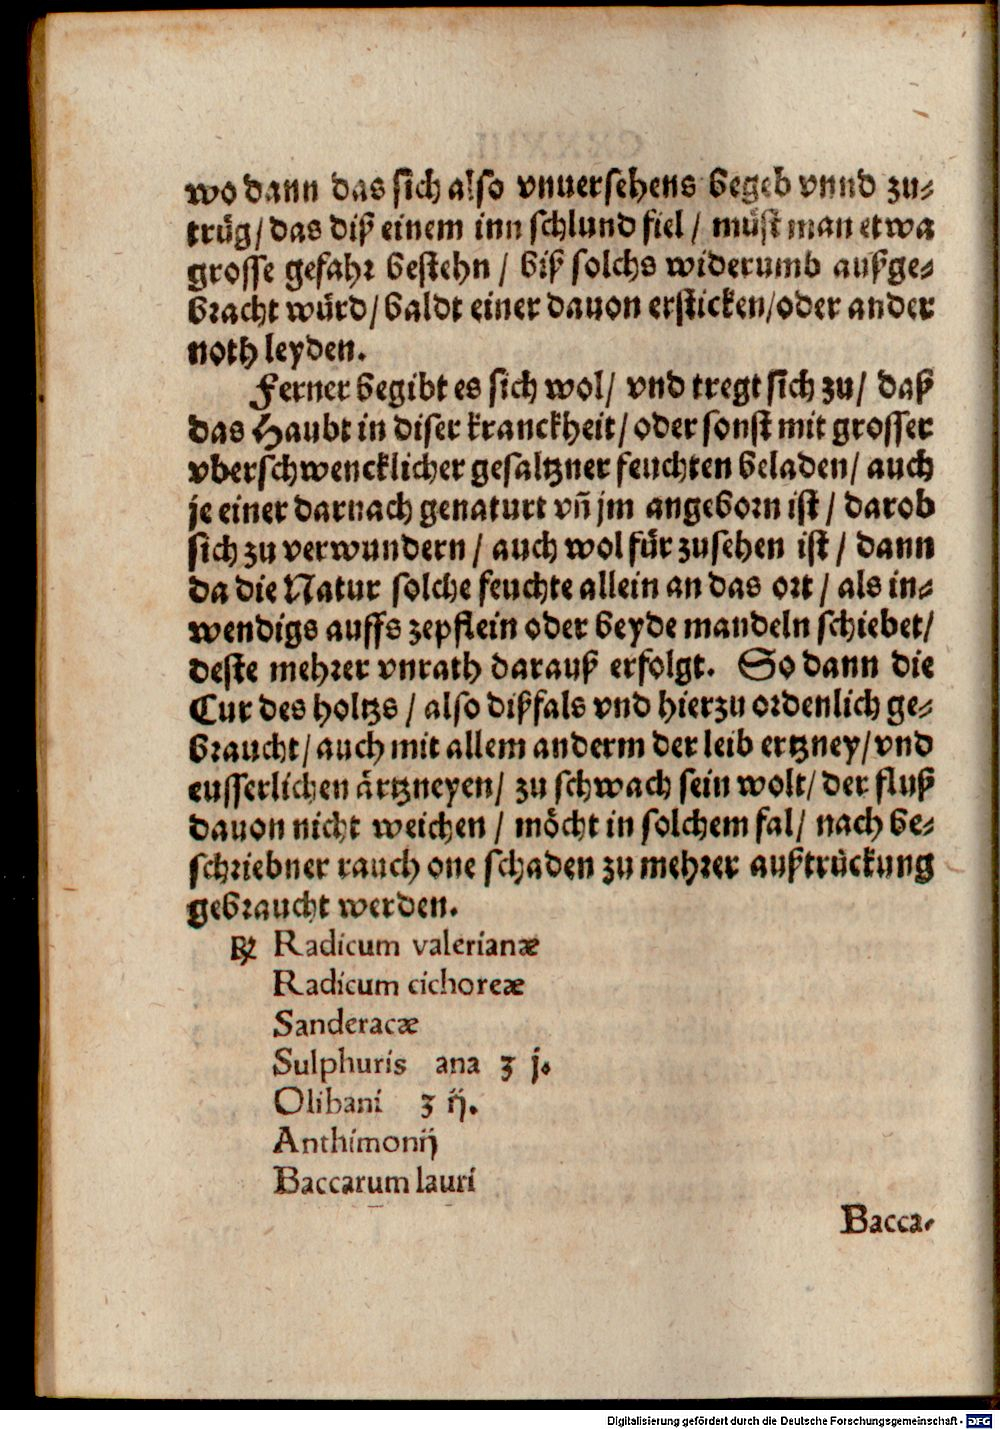 wo dann das sich also vnuersehens begeb vnnd zu-
trüg / das diß einem inn schlund fiel / müst man etwa
grosse gefahr bestehn / biß solchs widerumb außge-
bracht würd / baldt einer dauon ersticken / oder ander
noth leyden.
Ferner begibt es sich wol / vnd tregt sich zu / daß
das Haubt in diser kranckheit / oder sonst mit grosser
vberschwencklicher gesaltzner feuchten beladen / auch
je einer darnach genaturt vñ jm angeborn ist / darob
sich zu verwundern / auch wol für zusehen ist / dann
da die Natur solche feuchte allein an das ort / als in-
wendigs auffs zepflein oder beyde mandeln schiebet /
deste mehrer vnrath darauß erfolgt. So dann die
Cur des holtzs / also dißfals vnd hierzu ordenlich ge-
braucht / auch mit allem anderm der leib ertzney / vnd
eusserlichen ärtzneyen / zu schwach sein wolt / der fluß
dauon nicht weichen / möcht in solchem fal / nach be-
schriebner rauch one schaden zu mehrer außtrückung
gebraucht werden.
℞ Radicum valerianæ
Radicum cichoreæ
Sanderacæ
Sulphuris ana ʒ j.
Olibani ʒ ij.
Anthimonij
Baccarum lauri
Bacca-
Digitalisierung gefördert durch die Deutsche Forschungsgemeinschaft - DFG